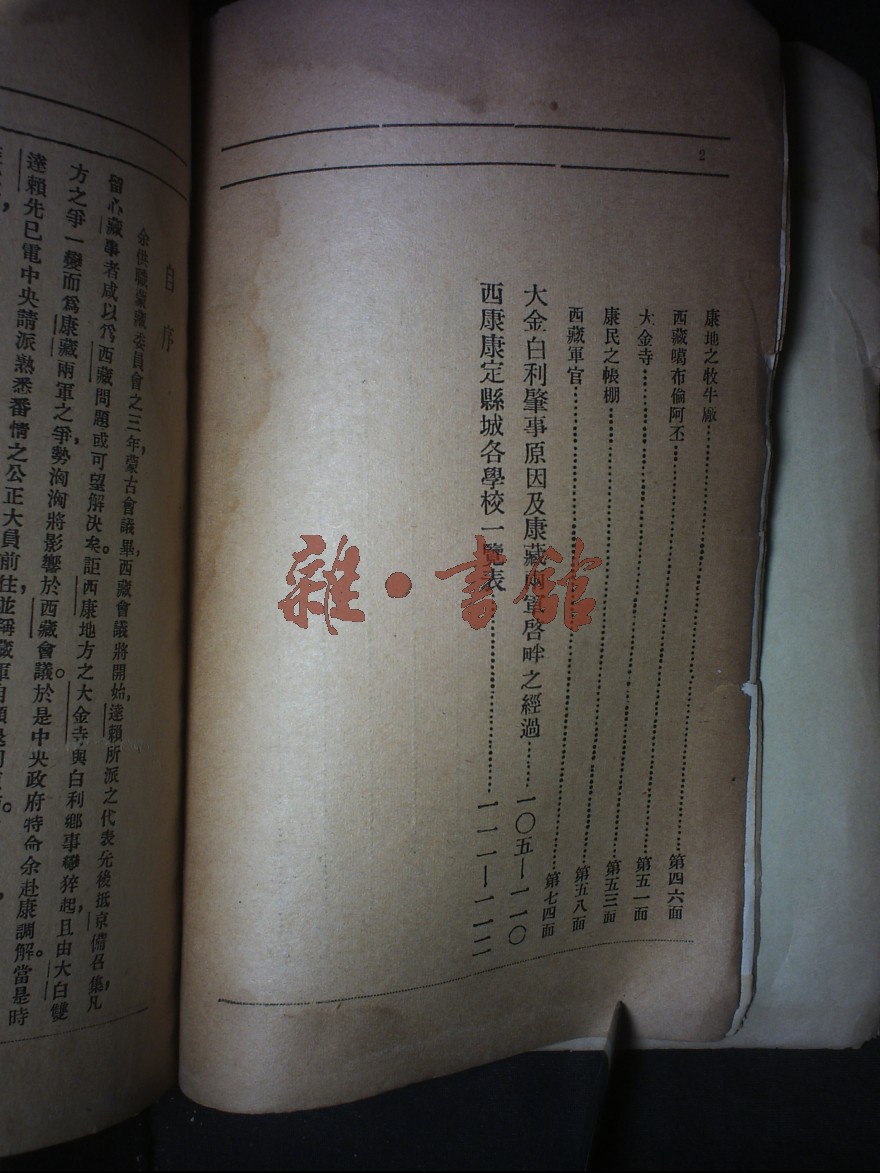 2
康地之牧牛廠………第四六面
西藏噶布倫阿丕………第五一面
大金寺………第五三面
康民之帳棚………第五八面
西藏軍官………第七四面
大金白利肇事原因及康藏兩軍啓衅之經過……一〇五—一一〇
西康康定縣城各學校一覽表………一一一—一一二
雜·書館
自序
余供職蒙藏委員會之三年，蒙古會議畢，西藏會議將開始，達賴所派之代表先後抵京，備召集，凡
留心藏事者咸以爲西藏問題或可望解决矣。詎西康地方之大金寺與白利鄉事變猝起，且由大白雙
方之爭一變而爲康藏兩軍之爭，勢洶洶將影響於西藏會議。於是中央政府特命余赴康調解，當是時
達賴先已電中央請派熟悉番情之公正大員前往，並稱藏軍自願退